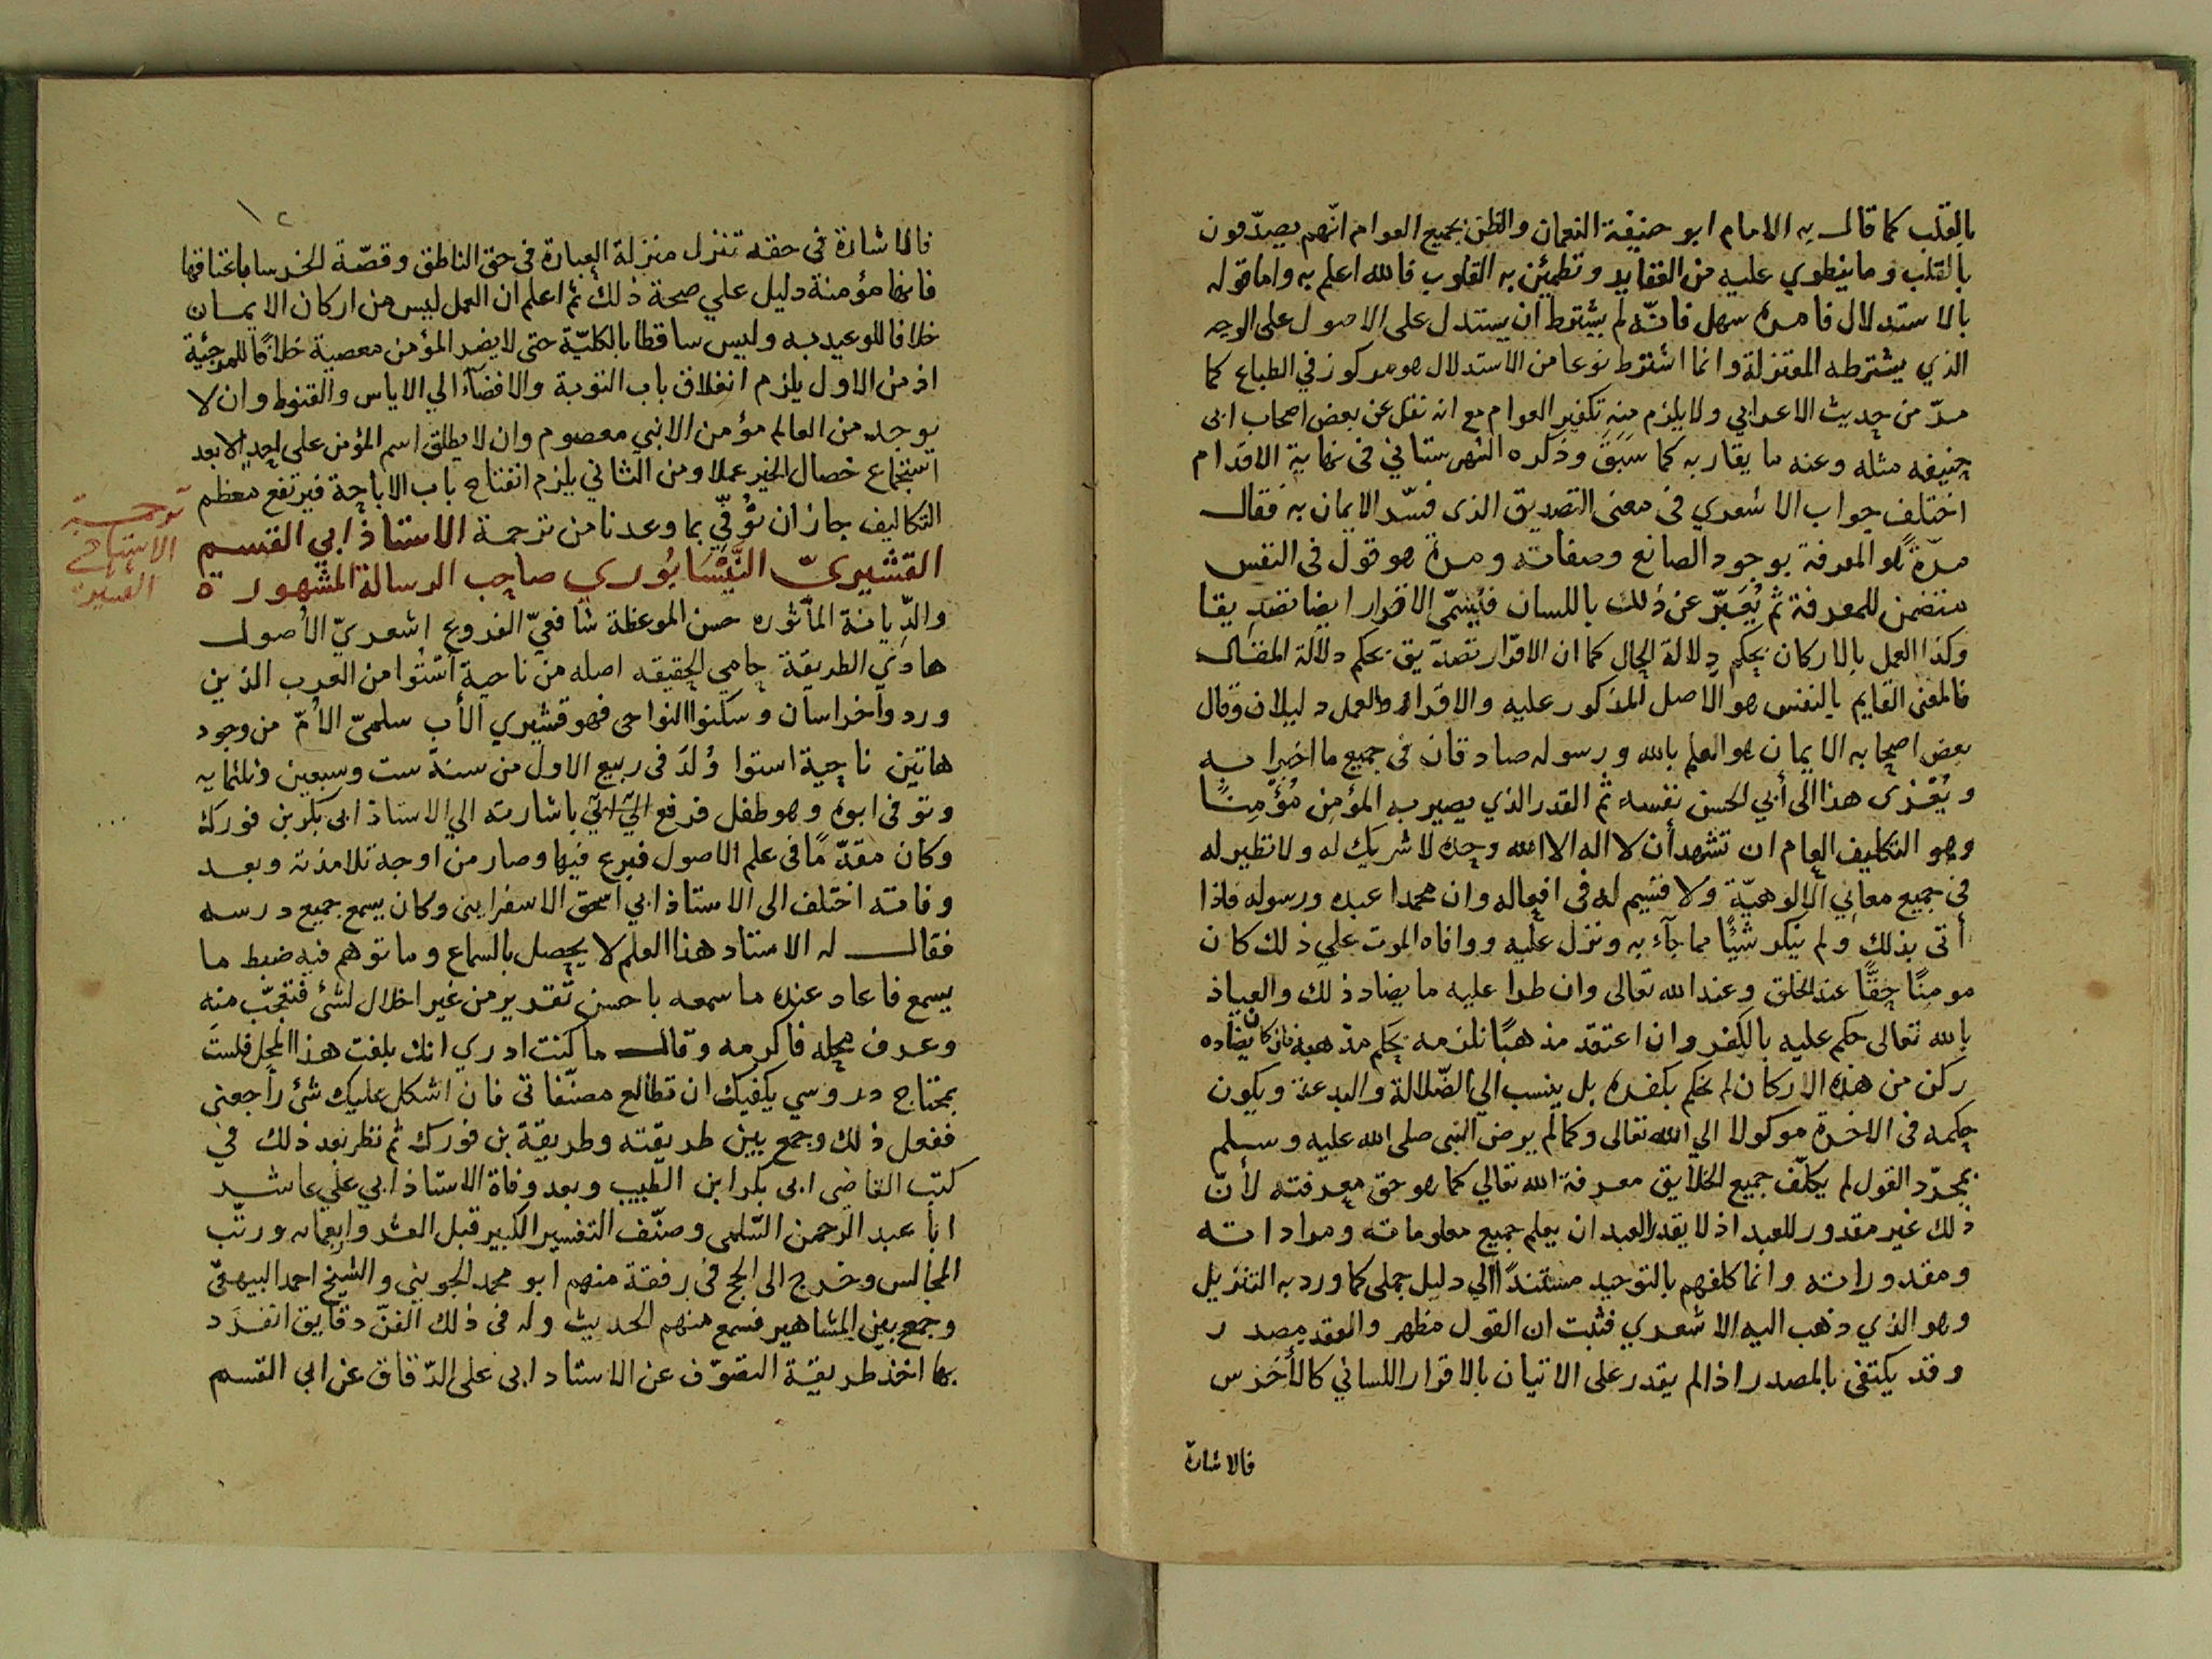 بالقلب كما قال به الامام ابو حنيفة النعمان والظن بجميع العوام انهم يصدّقون
بالقلب وما ينطوي عليه من العقايد وتطمئن به القلوب فالله اعلم به واما قوله
بالاستدلال فامره سهل فانّه لم يشترط ان يستدل على الاصول على الوجه
الذي يشترطه المعتزلة وانما اشترط نوعا من الاستدلال هو مركوز في الطباع كما
مرّ من حديث الاعرابي ولا يلزم منه تكفير العوام مع انه نقل عن بعض اصحاب ابى
حنيفه مثله وعنه ما يقاربه كما سَبَقَ وذكره الشهرستاني فى نهاية الاقدام
اختلف جواب الاشعري فى معنى التصديق الذى فسّر الايمان به فقال
مرّةً هو المعرفة بوجود الصانع وصفاته ومرة هو قول فى النفس
متضمن للمعرفة ثم يُعَبّر عن ذلك باللسان فيسمّى الاقرار ايضا تصديقا
وكذا العمل بالاركان بحكم دلالة الحال كما ان الاقرار تصديق بحكم دلالة المقال
فالمعنى القايم بالنفس هو الاصل المذكور عليه والاقرار والعمل دليلان وقال
بعض اصحابه الايمان هو العلم بالله ورسوله صادقان فى جميع ما اخبرا به
ويُعْزى هذا الى أبي الحسن نفسه ثم القدر الذي يصير به المؤمن مُؤمِنًا
وهو التكليف العام ان تشهد أن لا اله الا الله وحده لا شريك له ولا نظير له
فى جميع معاني الالوهيّة ولا قسيم له فى افعاله وان محمدا عبده ورسوله فاذا
أتى بذلك ولم ينكر شيئًا مما جآء به ونزل عليه ووافاه الموت علي ذلك كان
مومنًا حقًّا عند الخلق وعند الله تعالى وان طرا عليه ما يضاد ذلك والعياذ
بالله تعالى حكم عليه بالكفر وان اعتقد مذهبًا نلزمه بحكم مذهبه فان كان يضاده
ركن من هذه الاركان لم نحكم بكفره بل ينسب الي الضّلالة والبدعة ويكون
حكمه فى الاخرة موكولا الي الله تعالى وكما لم يرض النبى صلى الله عليه وسلم
بمجرّد القول لم يكلّف جميع الخلايق معرفة الله تعالي كما هو حق معرفته لأنّ
ذلك غير مقدور للعبد اذ لا يقدر العبد ان يعلم جميع معلوماته ومراداته
ومقدوراته وانما كلفهم بالتوحيد مستندًا الي دليل جملى كما ورد به التنزيل
وهو الذي ذهب اليه الاشعري فثبت ان القول مظهر والعقد مصدر
وقد يكتفى بالمصدر اذا لم يقدر على الاتيان بالاقرار اللساني كالأخرس
فالاشارة
١٢
فالاشارة فى حقه تنزل منزلة العبارة فى حق الناطق وقصّة الخرسا باعتاقها
فانها مؤمنة دليل علي صحة ذلك ثم اعلم ان العمل ليس من اركان الايمان
خلافا للوعيديه وليس ساقطا بالكليّة حتى لا يضر المؤمن معصية خلافًا للمرجئية
اذ من الاول يلزم انغلاق باب التوبة والافضآء الي الاياس والقنوط وان لا
يوجد من العالم مؤمن الا نبي معصوم وان لا يطلق اسم المؤمن على احد الا بعد
استجماع خصال الخير عملا ومن الثاني يلزم انفتاح باب الاباحة فيرتفع معظم
التكاليف جاز ان نُوُفّي بما وعدنا من ترجمة الاستاذ ابي القسم
ترجمة
الاستاد
القشيرى
القشيريّ النَّيْسَابُوري صاحب الرسالة المشهورة
والدِّيانة المأثوره حسن الموعظة شافعيّ الفروع اشعريّ الأصول
هادي الطريقة حامي الحقيقه اصله من ناحية أستُوا من العرب الذين
وردوا خراسان وسكنوا النواحى فهو قشيري الأب سلمىّ الأمّ من وجوه
هاتين ناحية استوا وُلدَ فى ربيع الاول من سنة ست وسبعين وثلثمايه
وتوفى ابوه وهو طفل فرفع باشارته الي الاستاذ ابى بكر بن فورك
وكان مقدّمًا فى علم الاصول فبرع فيها وصار من اوجة تلامذته وبعد
وفاته اختلف الى الاستاذ ابي اسحق الاسفراينى وكان يسمع جميع درسه
فقال له الاستاد هذا العلم لا يحصل بالسماع وما توهم فيه ضبط ما
يسمع فاعاد عنده ما سمعه باحسن تقرير من غير اخلال لشئ فتعجّب منه
وعرف محله فاكرمه وقال ما كنت ادري انك بلغت هذا المحل فلستَ
بمحتاج دروسي يكفيك ان تطالع مصنّفاتى فان اشكل عليك شئ راجعني
ففعل ذلك وجمع بين طريقته وطريقة بن فورك ثم نظر بعد ذلك في
كتب القاضى ابى بكر ابن الطيب وبعد وفاة الاستاذ ابي علي عاشر
ابا عبد الرحمن السّلمى وصنّف التفسير الكبير قبل العشر واربعمايه ورتّب
المجالس وخرج الى الحج فى رفقة منهم ابو محمد الجويني والشيخ احمد البيهقىّ
وجمع بين المشاهير فسمع منهم الحديث وله فى ذلك الفنّ دقايق انفرد
بها اخذ طريقة التصوّف عن الاستاد ابى على الدّقاق عن ابي القسم